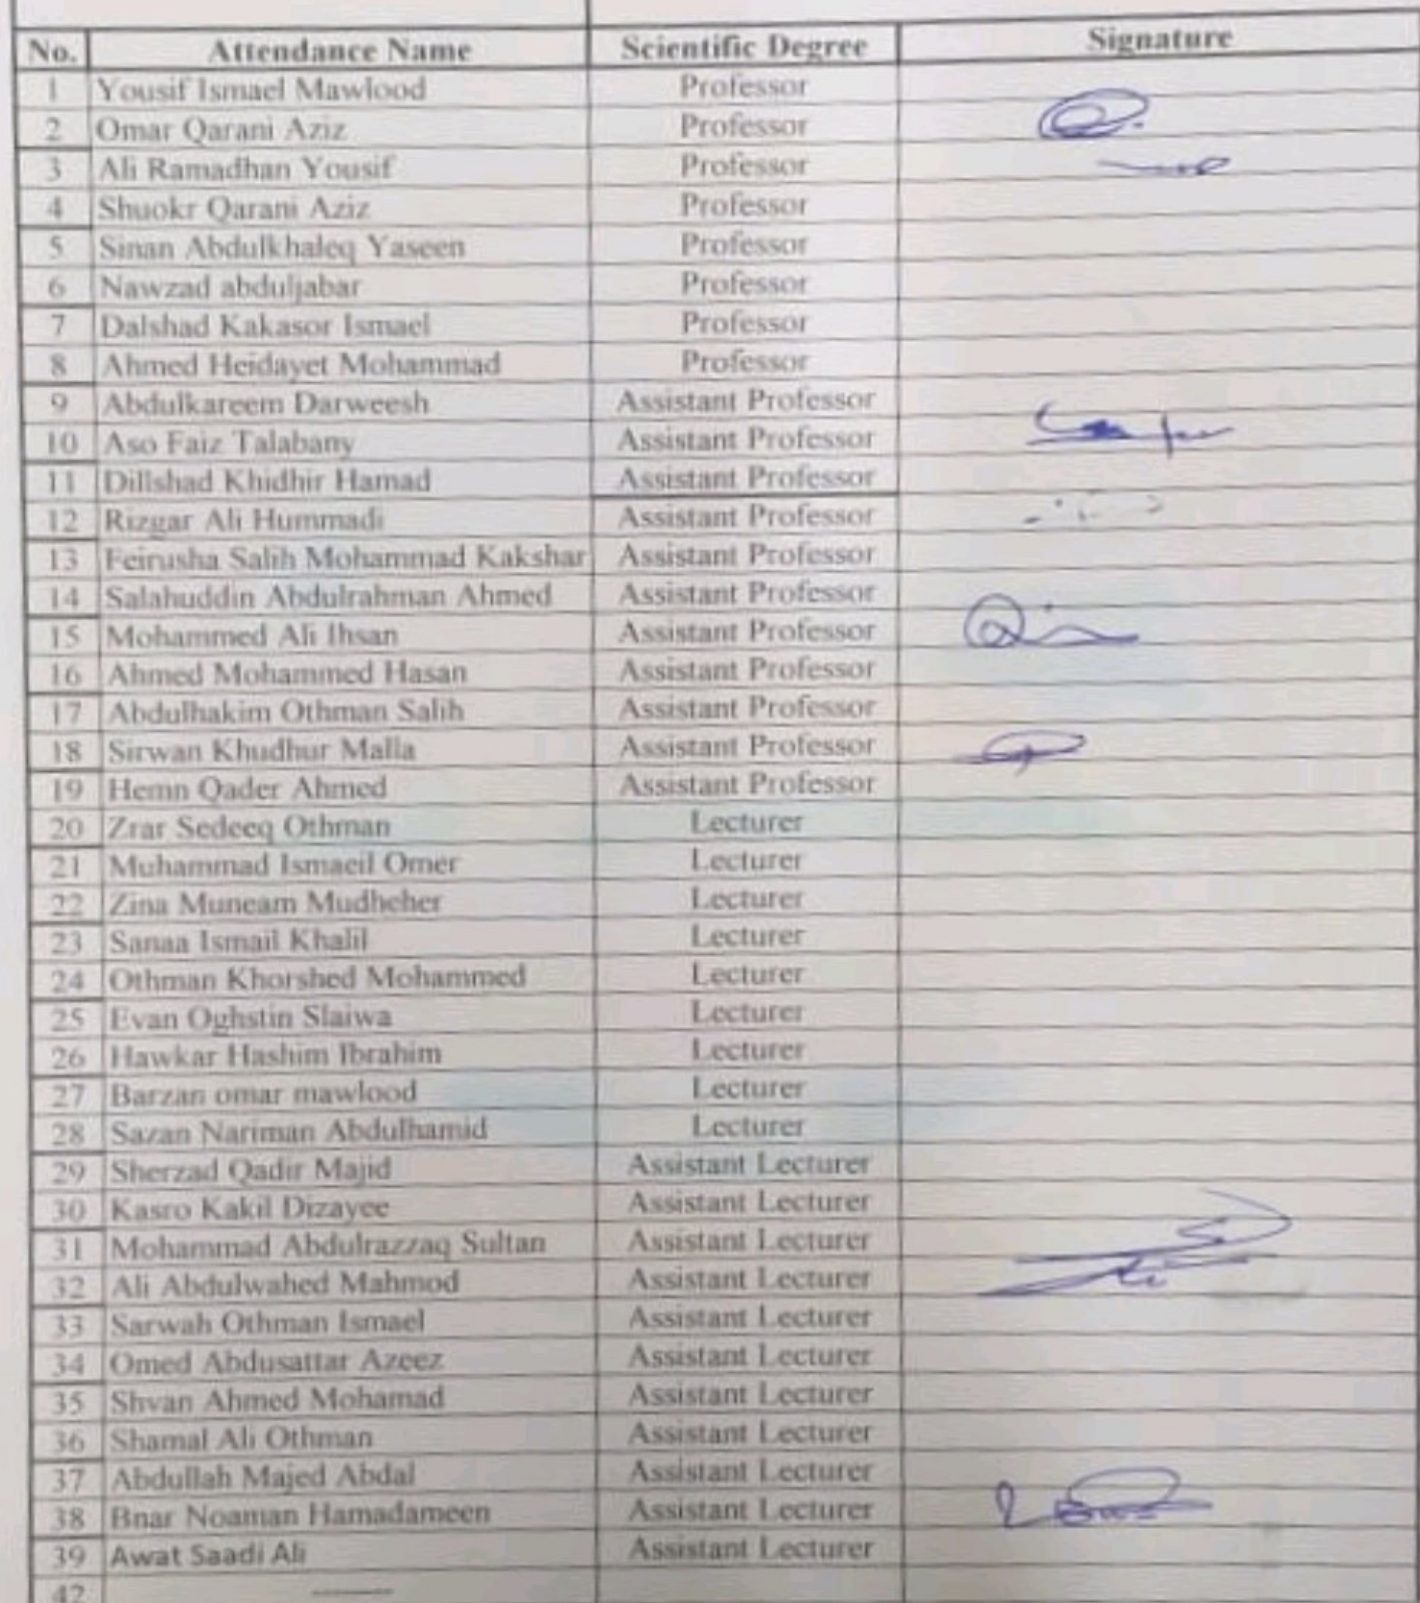 No. Attendance Name Scientific Degree Signature
1 Yousif Ismael Mawlood Professor
2 Omar Qarani Aziz Professor
3 Ali Ramadhan Yousif Professor
4 Shuokr Qarani Aziz Professor
5 Sinan Abdulkhaleq Yaseen Professor
6 Nawzad abduljabar Professor
7 Dalshad Kakasor Ismael Professor
8 Ahmed Heidayet Mohammad Professor
9 Abdulkareem Darweesh Assistant Professor
10 Aso Faiz Talabany Assistant Professor
11 Dillshad Khidhir Hamad Assistant Professor
12 Rizgar Ali Hummadi Assistant Professor
13 Feirusha Salih Mohammad Kakshar Assistant Professor
14 Salahuddin Abdulrahman Ahmed Assistant Professor
15 Mohammed Ali Ihsan Assistant Professor
16 Ahmed Mohammed Hasan Assistant Professor
17 Abdulhakim Othman Salih Assistant Professor
18 Sirwan Khudhur Malla Assistant Professor
19 Hemn Qader Ahmed Assistant Professor
20 Zrar Sedeeq Othman Lecturer
21 Muhammad Ismaeil Omer Lecturer
22 Zina Muneam Mudheher Lecturer
23 Sanaa Ismail Khalil Lecturer
24 Othman Khorshed Mohammed Lecturer
25 Evan Oghstin Slaiwa Lecturer
26 Hawkar Hashim Ibrahim Lecturer
27 Barzan omar mawlood Lecturer
28 Sazan Nariman Abdulhamid Lecturer
29 Sherzad Qadir Majid Assistant Lecturer
30 Kasro Kakil Dizayee Assistant Lecturer
31 Mohammad Abdulrazzaq Sultan Assistant Lecturer
32 Ali Abdulwahed Mahmod Assistant Lecturer
33 Sarwah Othman Ismael Assistant Lecturer
34 Omed Abdusattar Azeez Assistant Lecturer
35 Shvan Ahmed Mohamad Assistant Lecturer
36 Shamal Ali Othman Assistant Lecturer
37 Abdullah Majed Abdal Assistant Lecturer
38 Bnar Noaman Hamadameen Assistant Lecturer
39 Awat Saadi Ali Assistant Lecturer
42